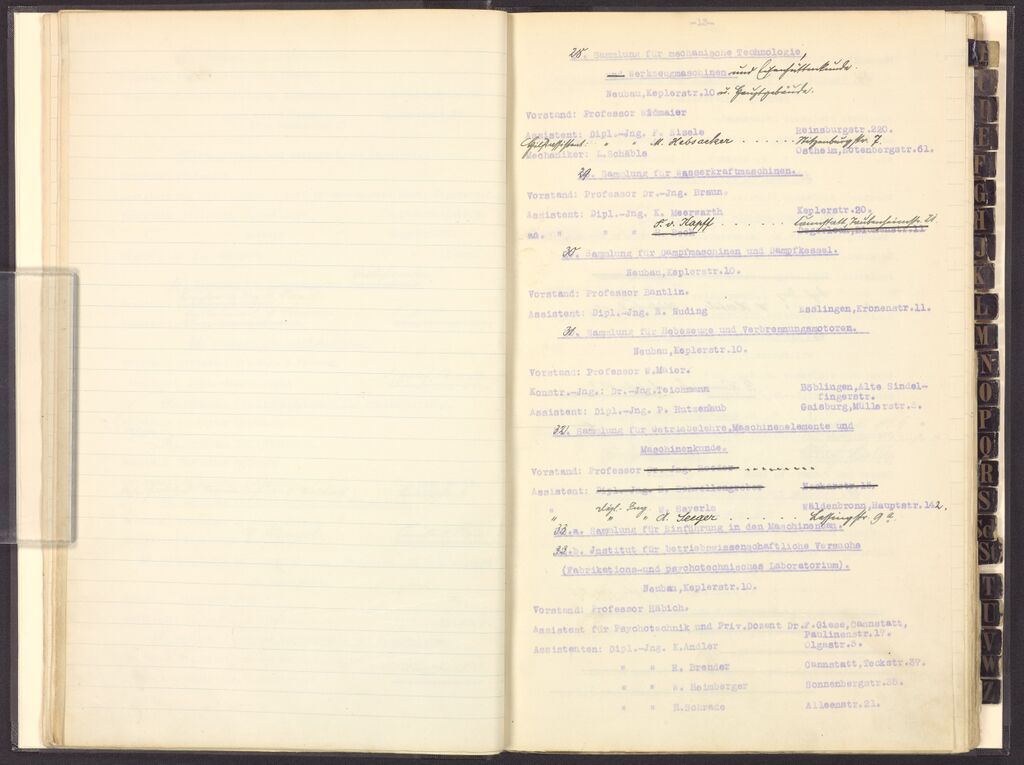 -13-
28. Sammlung für mechanische Technologie,
und Werkzeugmaschinen und Eisenhüttenkunde.
Neubau,Keplerstr.10 u. Hauptgebäude.
Vorstand: Professor Widmaier
Assistent: Dipl.-Jng. F. Eisele Reinsburgstr.220.
Hilfsassistent: " " M. Hebsacker . . . . . . str. 7.
Mechaniker: L.Schäble Ostheim,Rotenbergstr.61.
29. Sammlung für Wasserkraftmaschinen.
Vorstand: Professor Dr.-Jng. Braun.
Assistent: Dipl.-Jng. K. Meerwarth Keplerstr.20.
P. v. Kapff . . . . . . Cannstatt, Taubenheimstr. 21
an. " " "
30. Sammlung für Dampfmaschinen und Dampfkessel.
Neubau,Keplerstr.10.
Vorstand: Professor Bantlin.
Assistent: Dipl.-Jng. E. Nuding Esslingen,Kronenstr.11.
31. Sammlung für Hebezeuge und Verbrennungsmotoren.
Neubau,Keplerstr.10.
Vorstand: Professor W.Maier.
Konstr.-Jng.: Dr.-Jng.Teichmann Böblingen,Alte Sindel-
fingerstr.
Assistent: Dipl.-Jng. P. Hutzenlaub Gaisburg,Müllerstr.3.
32. Sammlung für Betriebslehre,Maschinenelemente und
Maschinenkunde.
Vorstand: Professor
Assistent: Dipl. Jng. Neckarstr.18,
" Dipl. Ing. Bayerle Waldenbronn,Hauptstr.142.
" " " A. Seeger . . . . . . Lessingstr. 9a.
33.a. Sammlung für Einführung in den Maschinenbau.
33.b. Jnstitut für betriebswissenschaftliche Versuche
(Fabrikations-und psychotechnisches Laboratorium).
Neubau,Keplerstr.10.
Vorstand: Professor Häbich.
Assistent für Psychotechnik und Priv.Dozent Dr.F.Giese,Cannstatt,
Paulinenstr.17.
Assistenten: Dipl.-Jng. K.Andler Olgastr.3.
" " R. Brender Cannstatt,Teckstr.37.
" " W. Heimberger Sonnenbergstr.35.
" " H.Schrade Alleenstr.21.
D
E
F
G
H
J
K
L
M
N
O
P
Q
R
S
Sch
St
T
U
V
W
Z